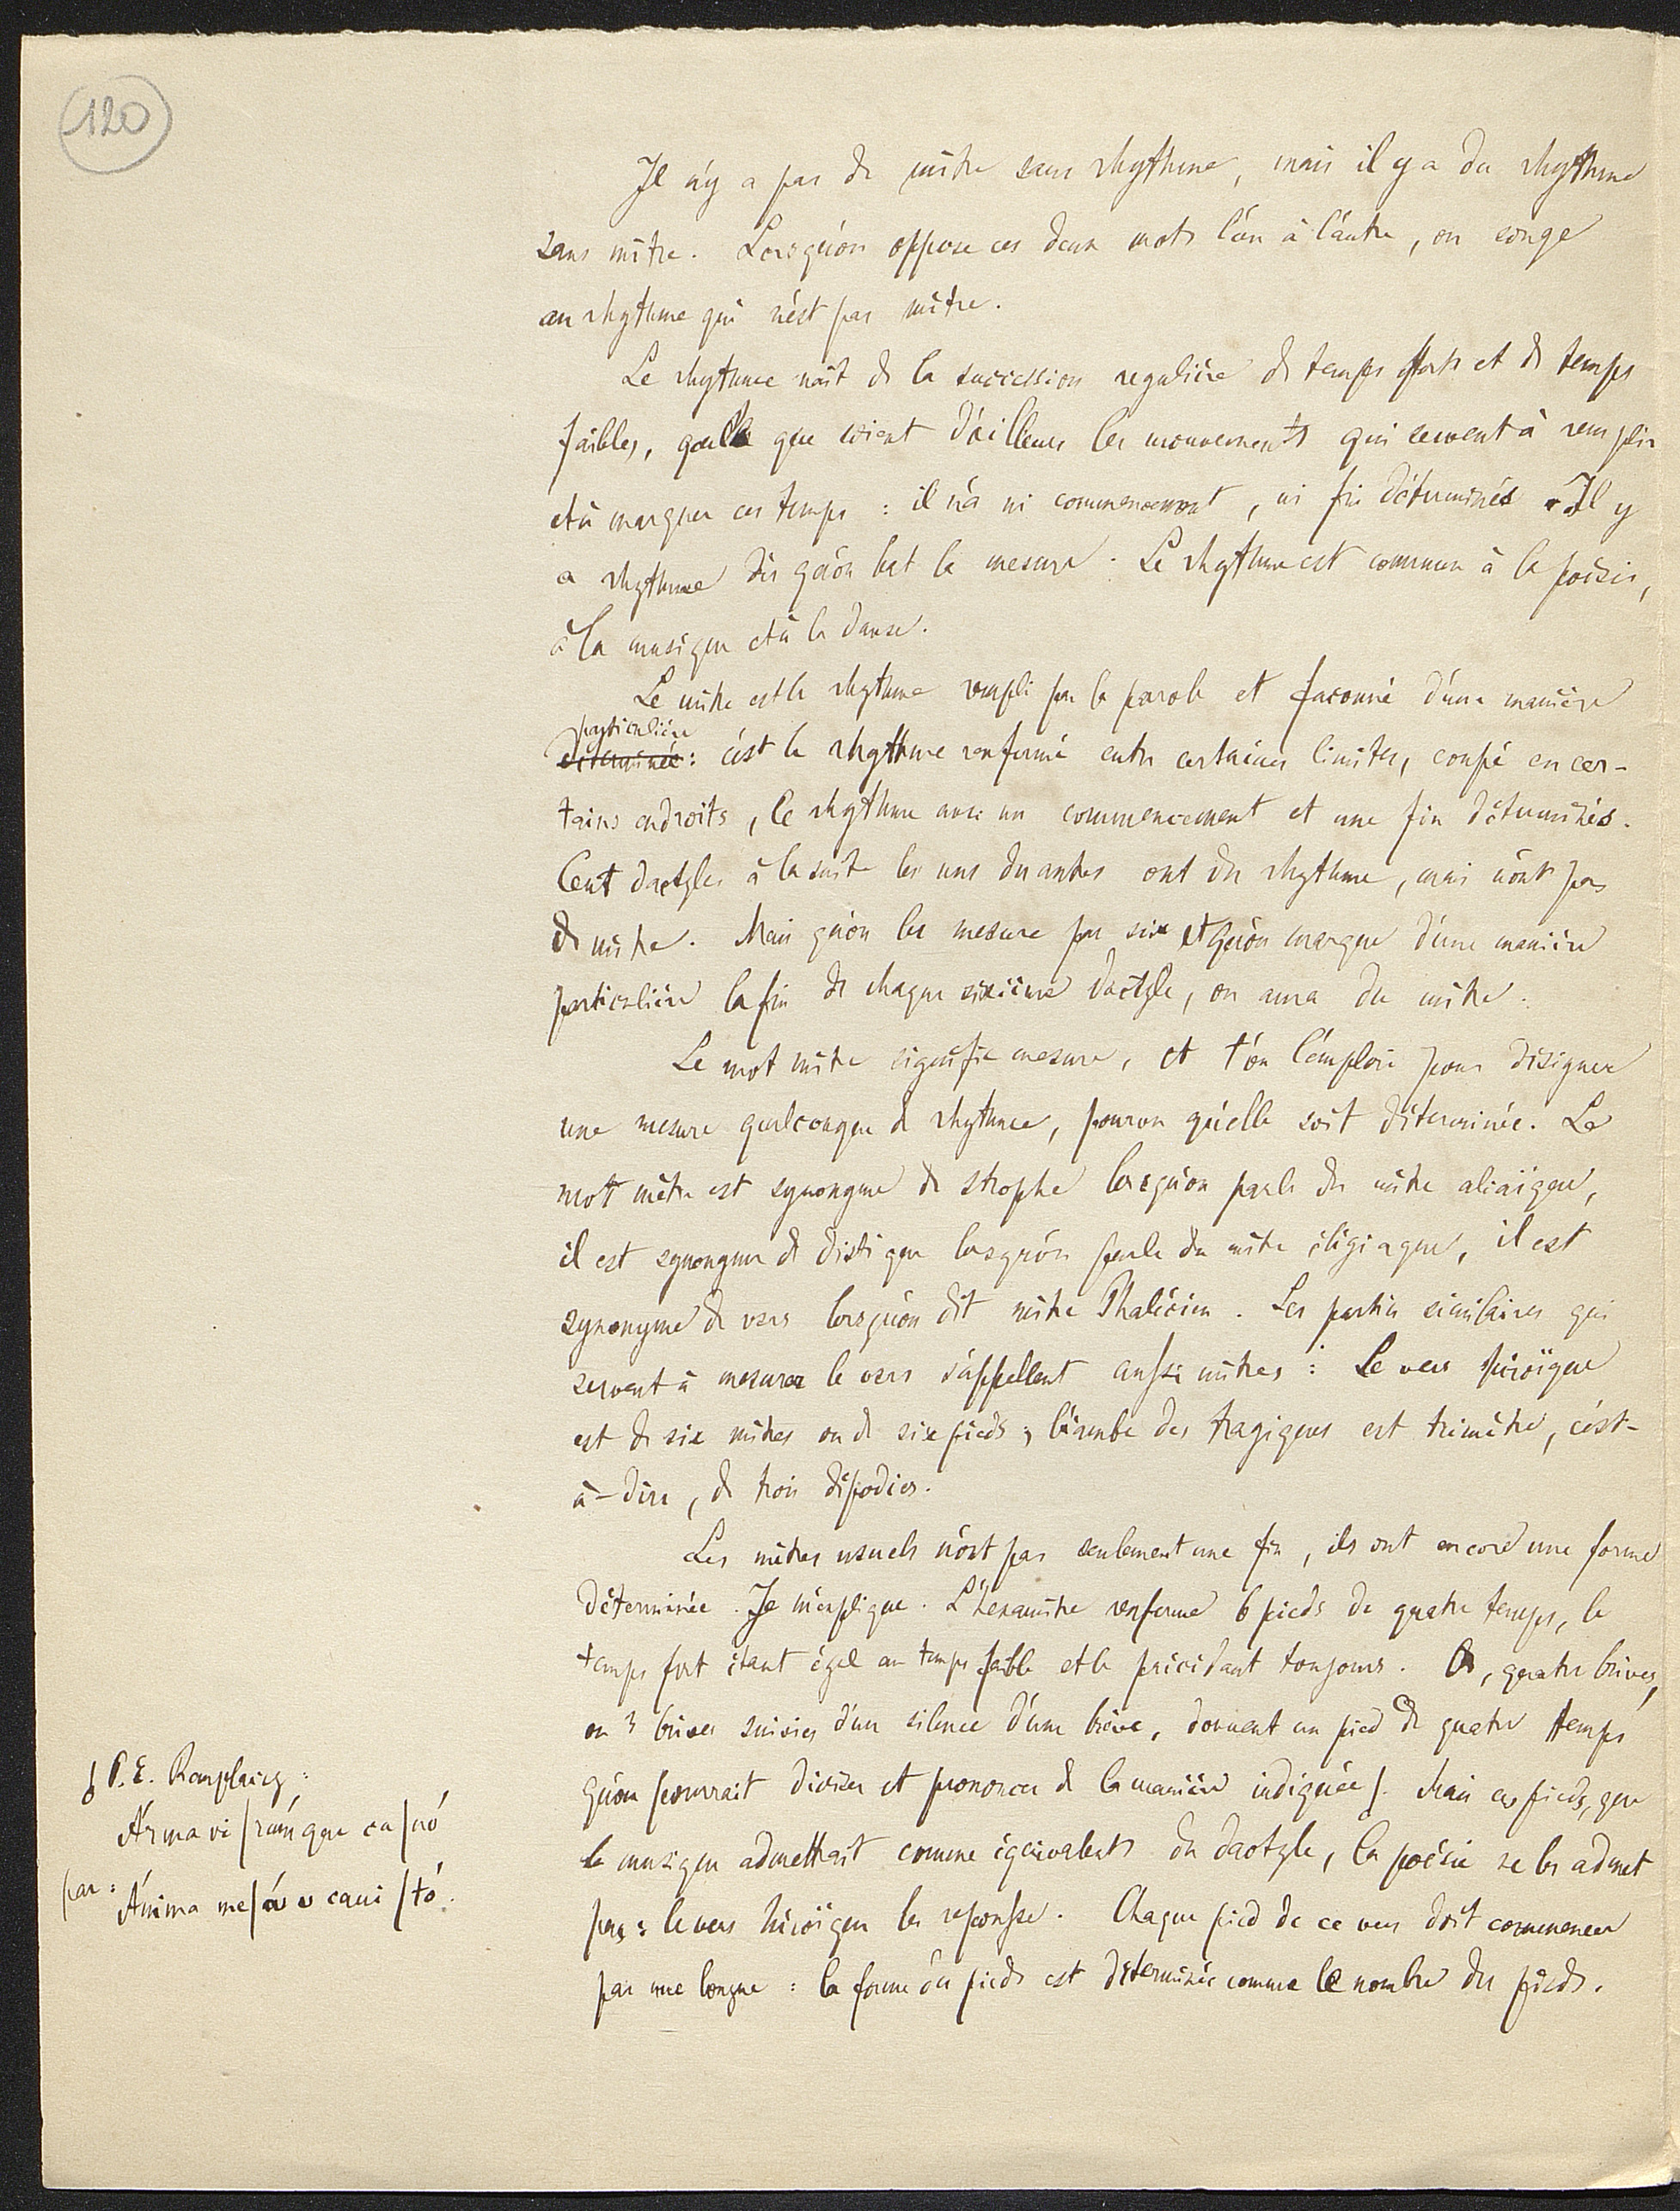 120
Il n'y a pas de mètre sans rhythme, mais il y a du rhythme
sans mètre. Lorsqu'on oppose ces deux mots l'un à l'autre, on songe
au rhythme qui n'est pas mètre.
Le rhythme naît de la succession regulière de temps forts et de temps
faibles, quels que soient d'ailleurs les mouvements qui servent à remplir
et à marquer ces temps : il n'a ni commencement, ni fin déterminés. Il y
a rhythme dès qu'on bat la mesure. Le rhythme est commun à la poésie,
à la musique et à la danse.
Le mètre est le rhythme rempli par la parole et façonné d'une manière
particulière
déterminée : c'est le rhythme renfermé entre certaines limites, coupé en cer-
tains endroits, le rhythme avec un commencement et une fin déterminés.
Cent dactyles à la suite les uns des autres ont du rhythme, mais n'ont pas
de mètre. Mais qu'on les mesure par six et qu'on marque d'une manière
particulière la fin de chaque sixième dactyle, on aura du mètre.
Le mot mètre signifie mesure, et l'on l'emploie pour désigner
une mesure quelconque de rhythme, pourvu qu'elle soit déterminée. Le
mot mètre est synonyme de strophe lorsqu'on parle du mètre alcaïque,
il est synonyme de distique lorsqu'on parle du mètre élégiaque, il est
synonyme de vers lorsqu'on dit mètre Phalécien. Les parties similaires qui
servent à mesurer le vers s'appellent aussi mètres : le vers héroïque
est de six mètres ou de six pieds ; l'iambe des tragiques est trimètre, c'est-
à-dire, de trois dipodies.
Les mètres usuels n'ont pas seulement une fin, ils ont encore une forme
déterminée. Je m'explique. L'hexamètre renferme 6 pieds de quatre temps, le
temps fort étant égal au temps faible et le précédant toujours. Or, quatre brèves,
ou 3 brèves suivies d'un silence d'une brève, donnent un pied de quatre temps
qu'on pourrait diviser et prononcer de la manière indiquée ∫. Mais ces pieds, que
la musique admettrait comme équivalents du dactyle, la poésie ne les admet
pas : le vers héroïque les repousse. Chaque pied de ce vers doit commencer
par une longue : la forme des pieds est déterminée comme le nombre des pieds.
∫ P. E. Remplacez :
Árma vi|rúmque ca|nó
par :
Ánima me|á v cani|tó.